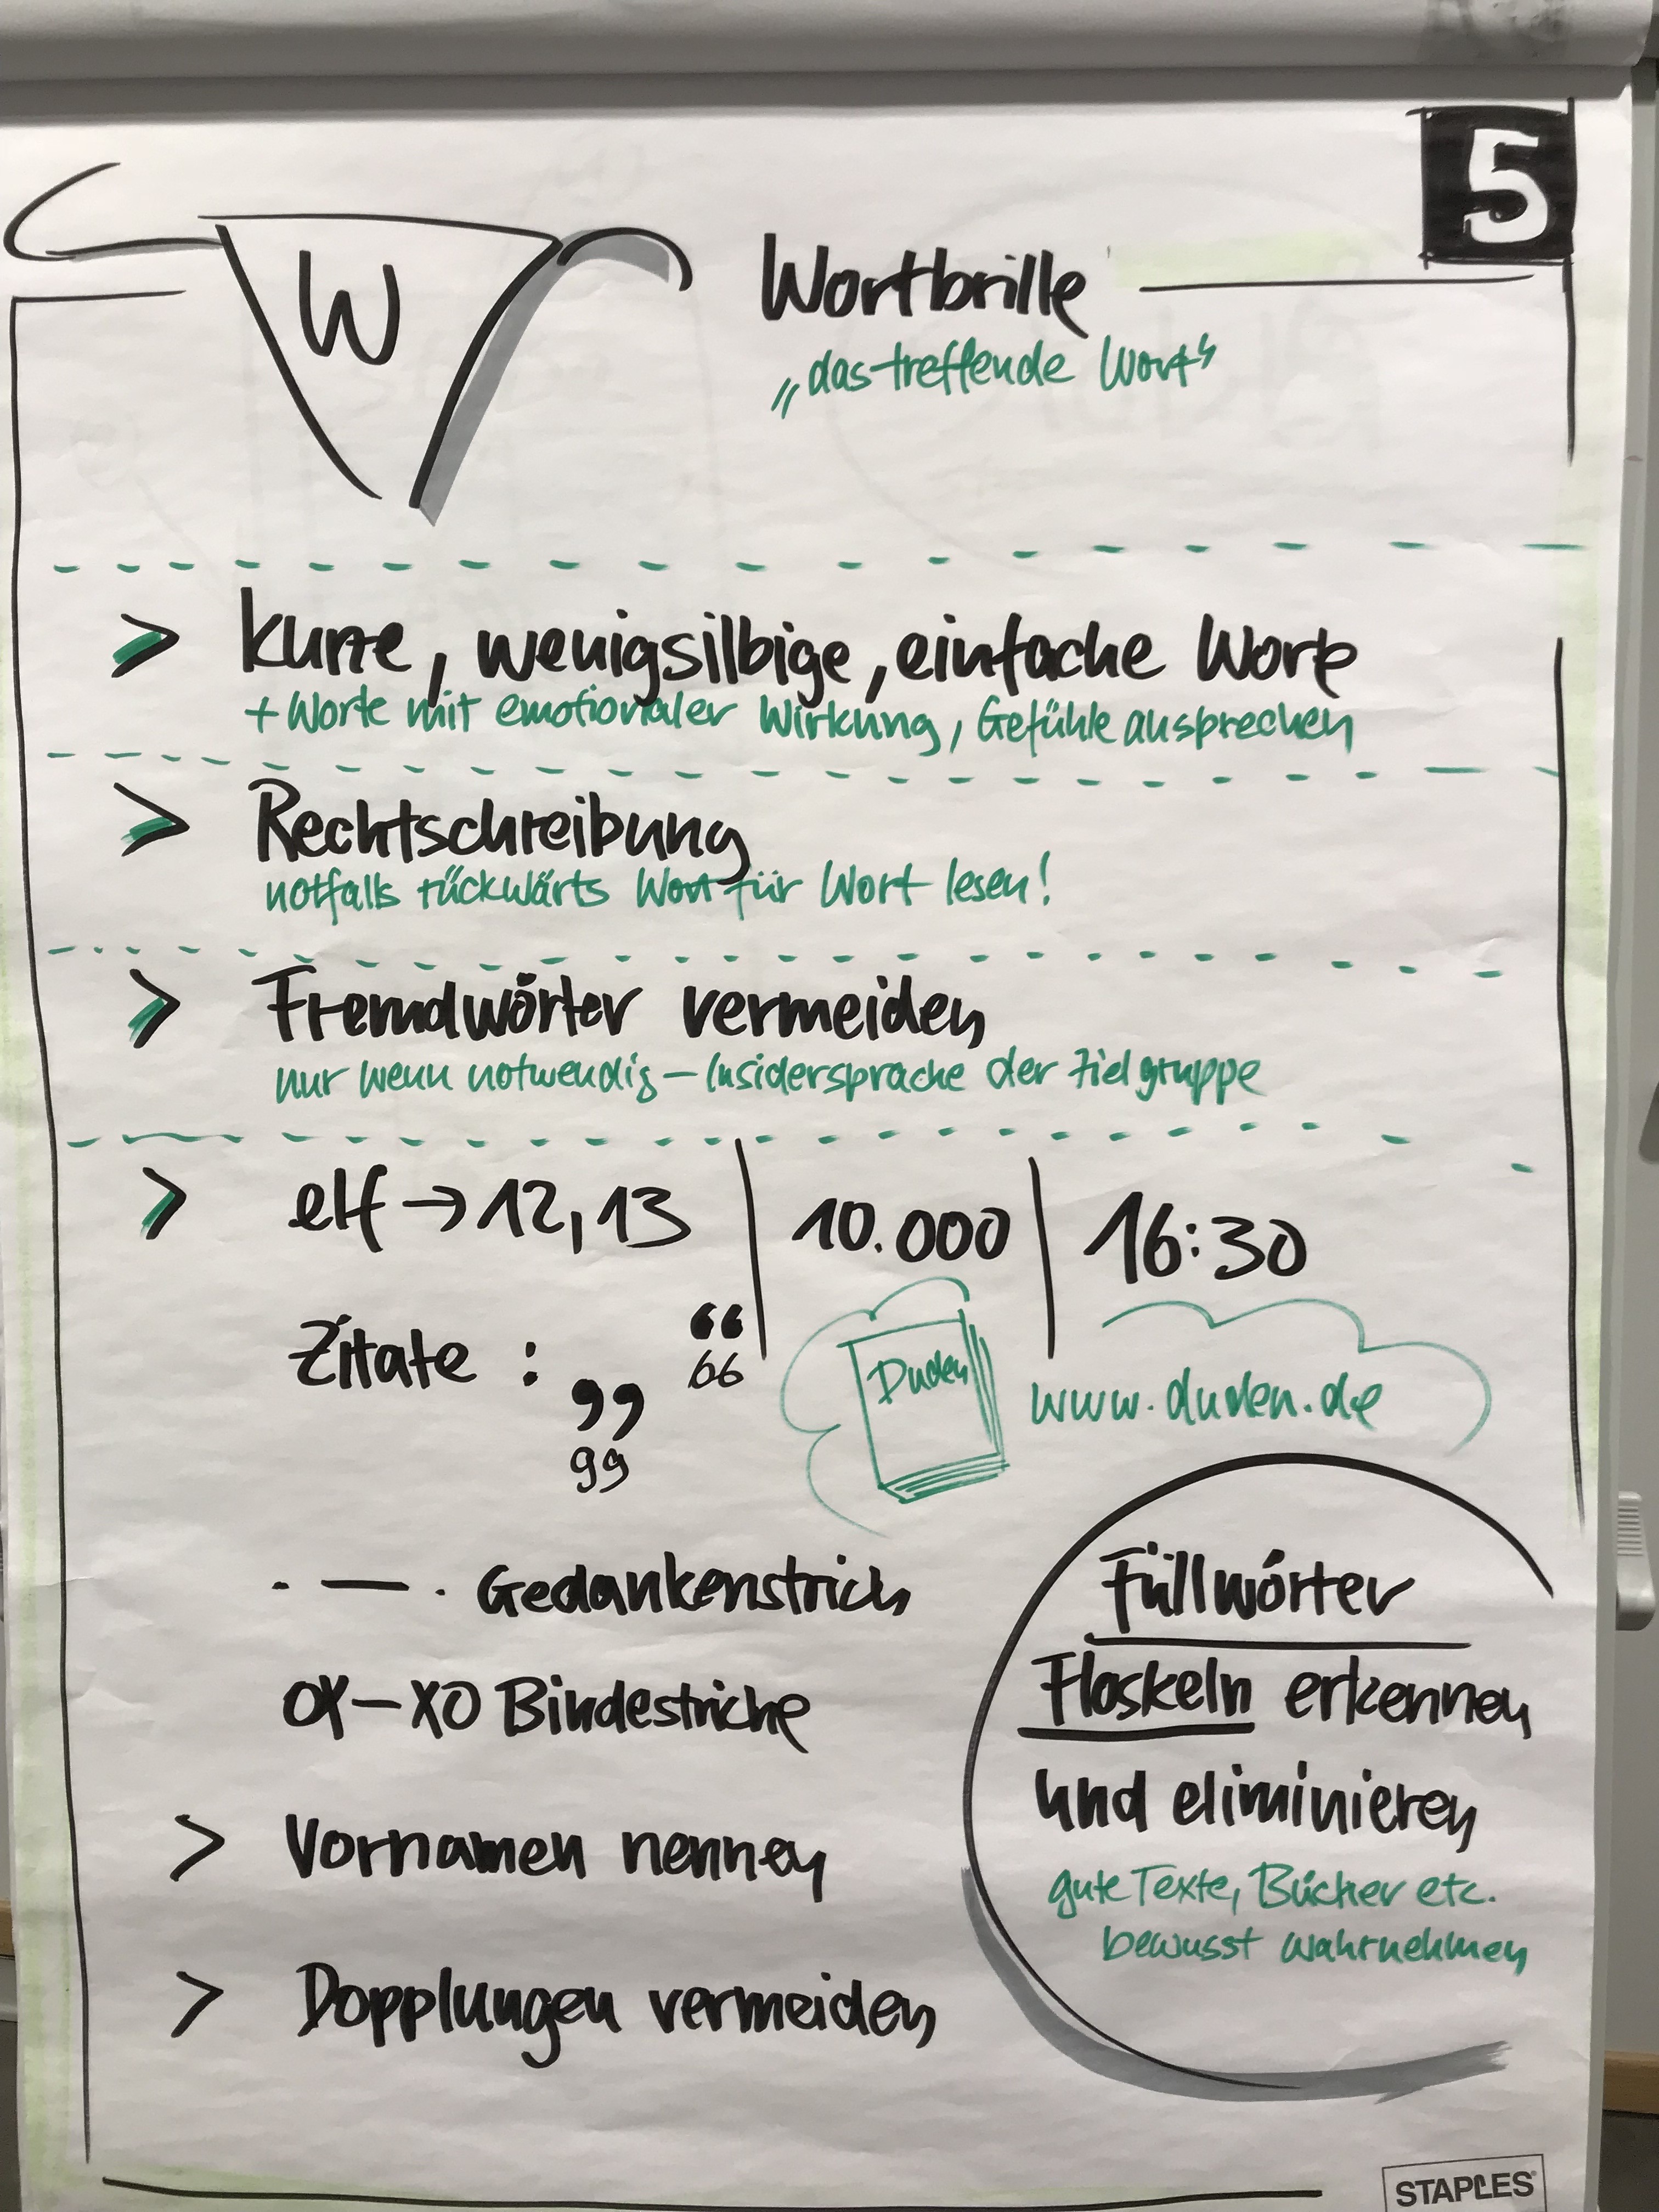 5
W
Wortbrille
„das treffende Wort“
> kurze, wenigsilbige, einfache Worte
+ Worte mit emotionaler Wirkung, Gefühle aussprechen
> Rechtschreibung
notfalls rückwärts Wort für Wort lesen!
> Fremdwörter vermeiden
nur wenn notwendig – Insidersprache der Zielgruppe
> elf → 12, 13 | 10.000 | 16:30
Zitate : „ “
99 66
Duden
www.duden.de
· — · Gedankenstrich
OX–XO Bindestriche
> Vornamen nennen
> Dopplungen vermeiden
Füllwörter
Floskeln erkennen
und eliminieren
gute Texte, Bücher etc.
bewusst wahrnehmen
STAPLES